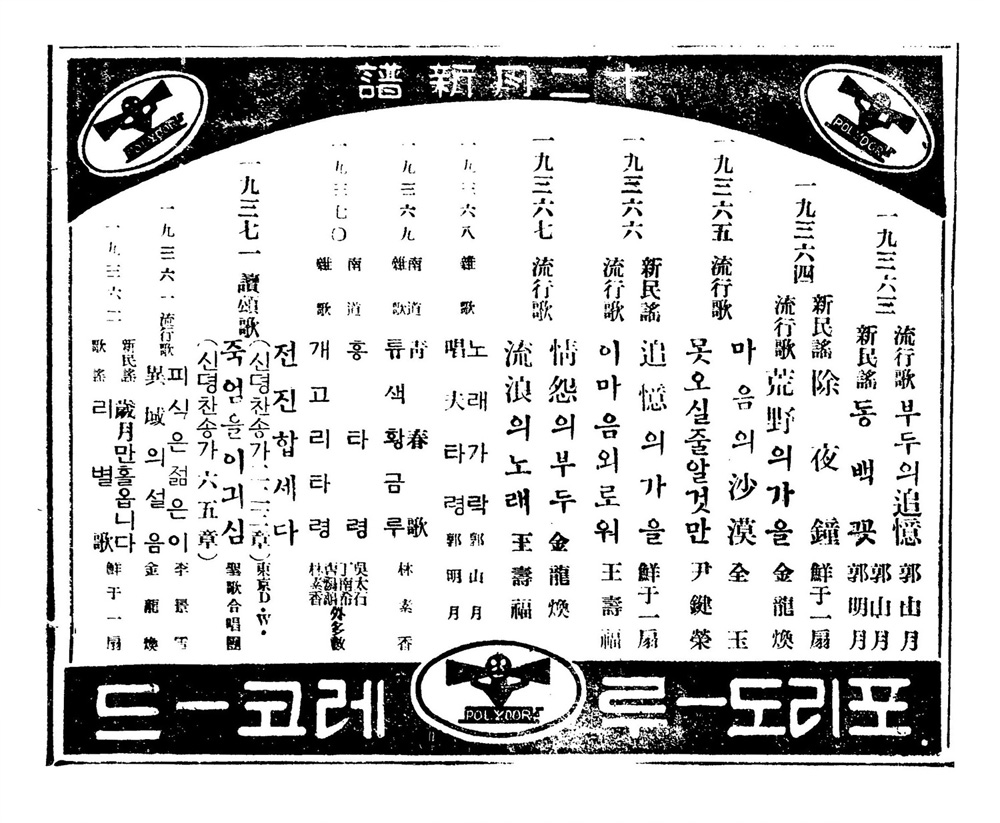 十二月新譜
POLYDOR
POLYDOR
一九三六三
流行歌 부두의追憶 郭山月
新民謠 동백꽃 郭山月 郭明月
一九三六四
新民謠 除夜鐘 鮮于一扇
流行歌 荒野의가을 金龍煥
一九三六五 流行歌
마음의沙漠 全玉
못오실줄알것만 尹鍵榮
一九三六六
新民謠 追憶의가을 鮮于一扇
流行歌 이마음외로워 王壽福
一九三六七 流行歌
情怨의부두 金龍煥
流浪의노래 王壽福
一九三六八 雜歌
노래가락 郭山月
唱夫타령 郭明月
一九三六九
南道雜歌
靑春歌
륙색황금루 林素香
一九三七〇
南道雜歌
흥타령
개고리타령
吳太石 丁南希 林素香 外多數
一九三七一 讚頌歌
전진합세다
(신명찬송가 章) 東京D.W.
죽엄을이긔심
(신명찬송가六五章) 聖歌合唱團
一九三六一 流行歌
피식은젊은이 李景雪
異域의설음 金龍煥
一九三六二
新民謠 歲月만홀옵니다
歌謠 리별歌 鮮于一扇
포리도ー루 레코ー드
POLYDOR